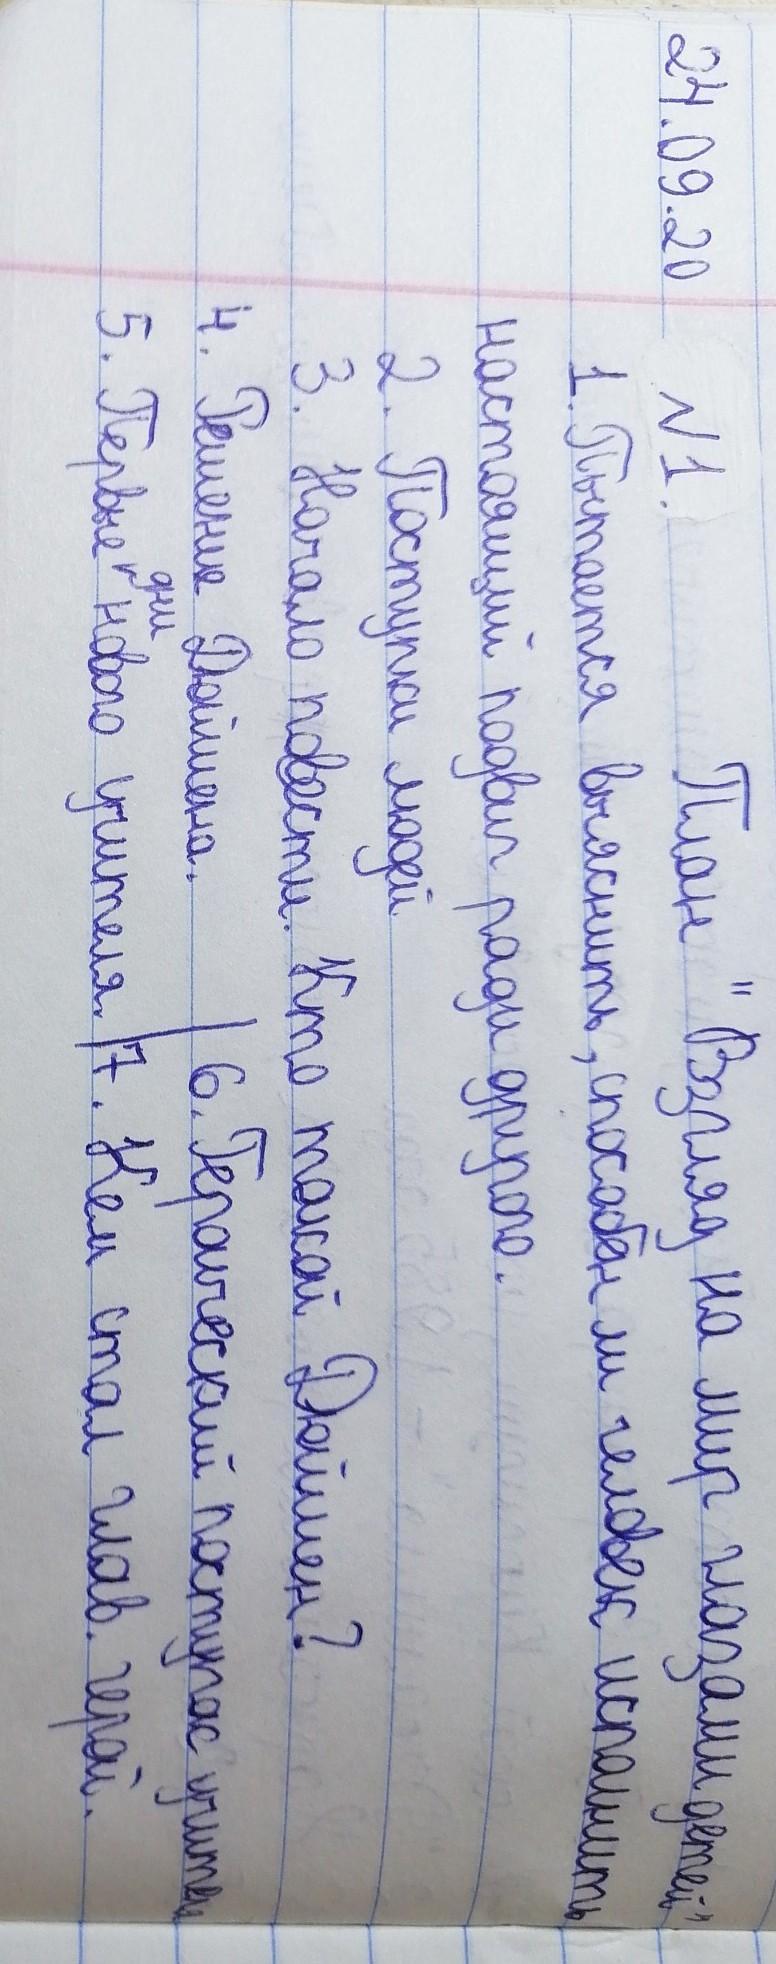 24.09.20
№1. План "Взгляд на мир глазами детей"
1. Пытается выяснить, способен ли человек исполнить
настоящий подвиг ради другого.
2. Поступки людей
3. Начало повести. Кто такой Дюйшен?
4. Решение Дюйшена. | 6. Героический поступок учителя
дни
5. Первые нового учителя. | 7. Кем стал глав. герой.